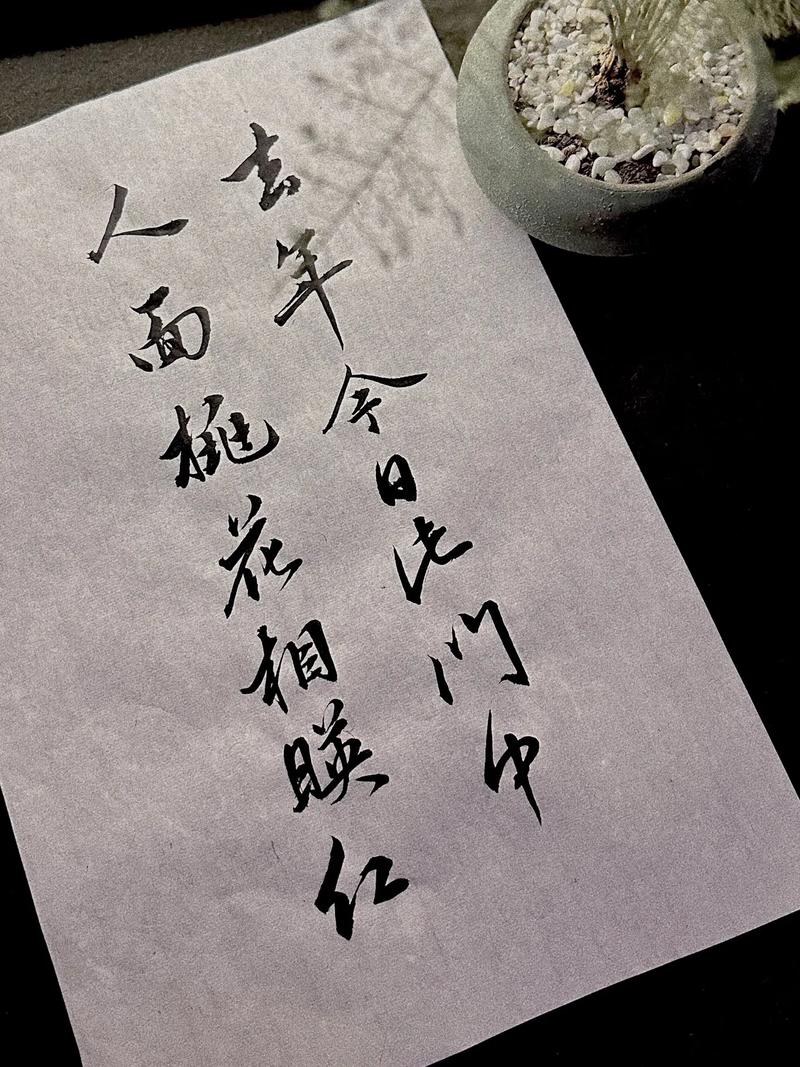 去年今日此門中
人面桃花相映红